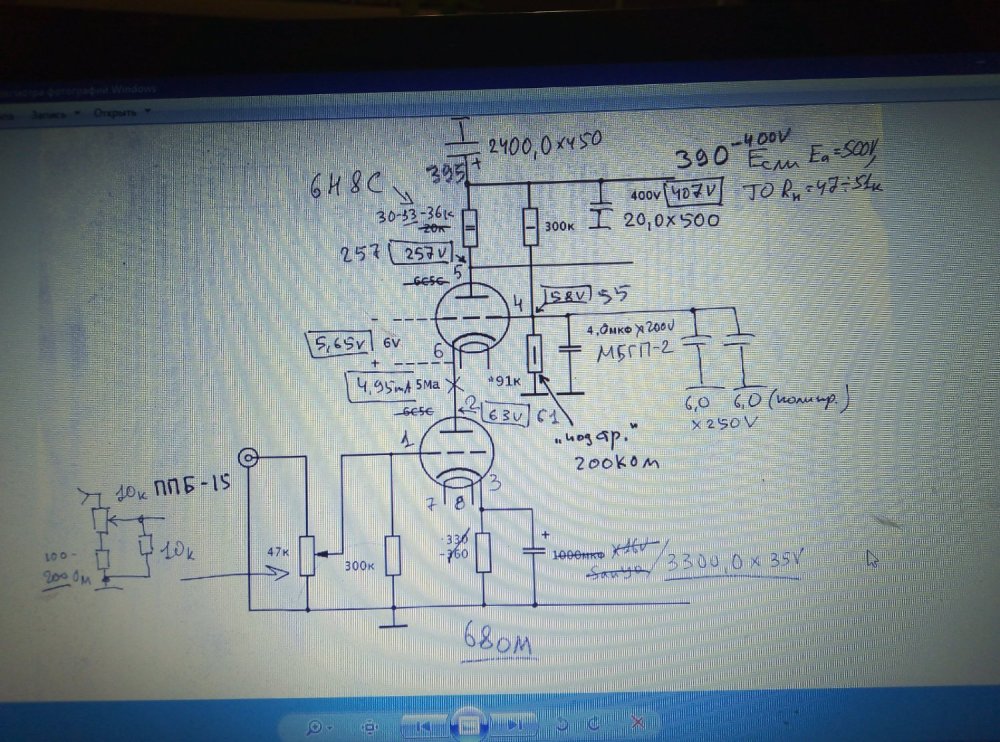 просмотра фотографий Windows
Запись Открыть
2400,0x450
+
395
390-400V
Если Ea=500V,
ТО Rн=47÷51к
6Н8С
400v 407V
20,0x500
30-33-36к
20к
300к
257 257V
5
6С5С
4
58V 55
5,65v 6v
6
4,0мкф x 200v
МБГП-2
+
4,95mA 5Ма
*91к
6С5С
2 63V 61
6,0 6,0 (полипр.)
x 250V
1
"подстр."
200КОМ
3
7 8
10к ППБ-15
10к
100-
200 Ом
47к
300к
330
-360
+
1000мкф x 16V
Sanyo / 3300,0 x 35V
680м